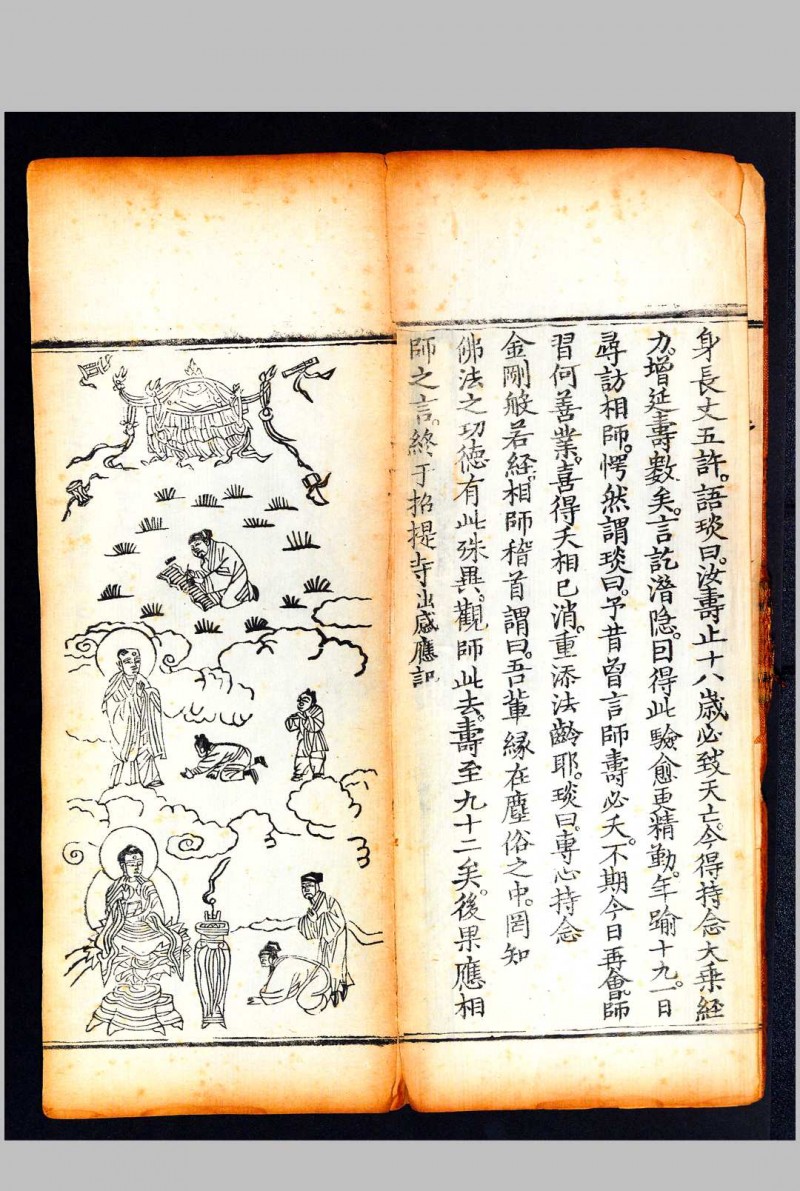 身長丈五許。語琰曰。汝壽止十八歲必致夭亡。今得持念大乘經
力。增延壽數矣。言訖潛隐。囙得此驗愈更精勤。年踰十九。一日
尋訪相師。愕然謂琰曰。予昔曾言師壽必夭。不期今日再會。師
習何善業。喜得夭相已消。重添法齡耶。琰曰。專心持念
金剛般若經。相師稽首謂曰。吾輩緣在塵俗之中。罔知
佛法之功德有此殊異。觀師此去。壽至九十二矣。後果應相
師之言。終于招提寺出感應記